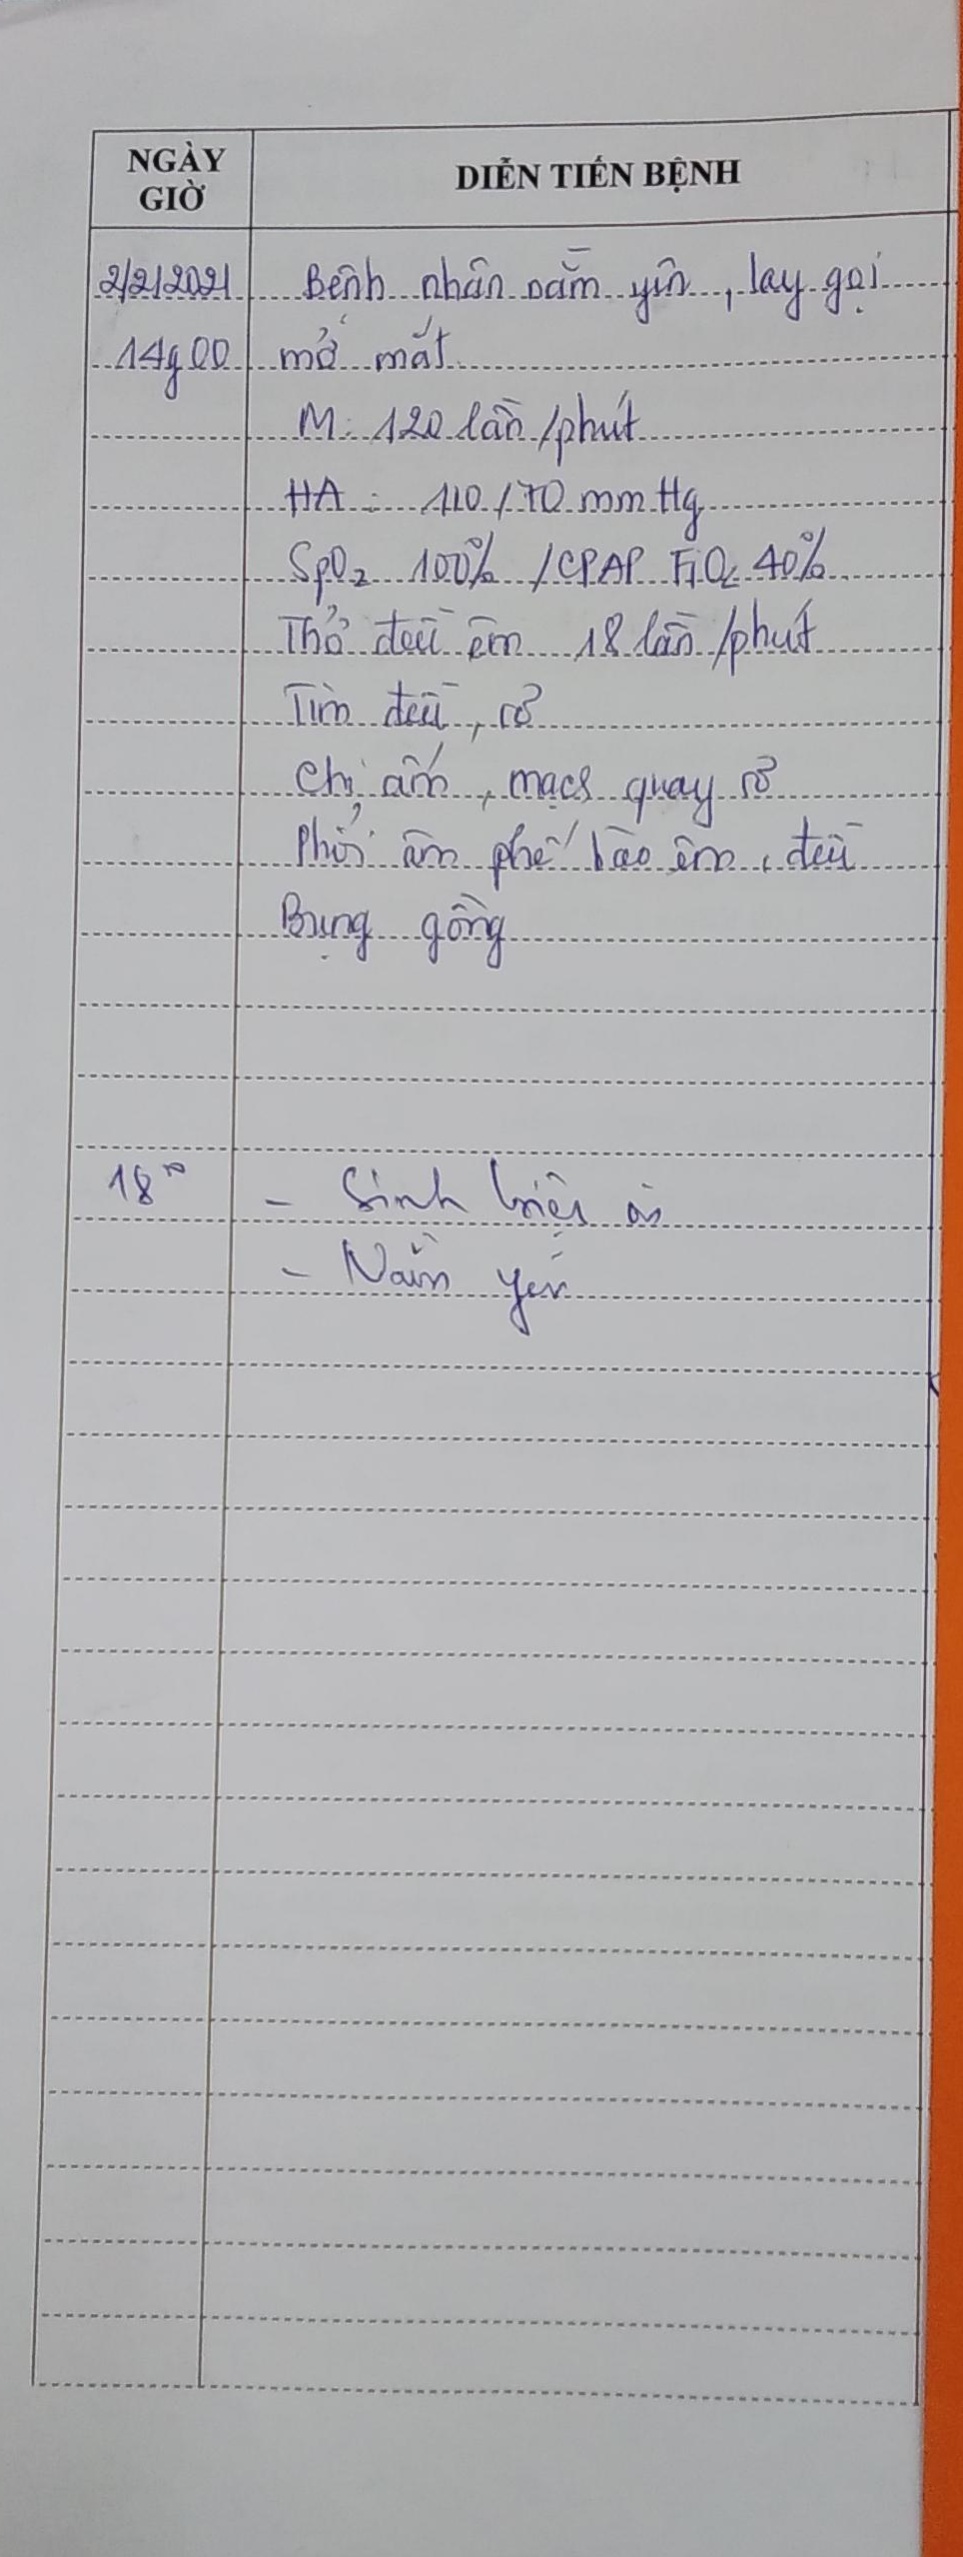 NGÀY
GIỜ
DIỄN TIẾN BỆNH
2/2/2021 Bệnh nhân nằm yên, lay gọi
14g00 mở mắt
M: 120 lần/phút
HA: 110/70 mmHg
SpO2 100% /CPAP FiO2 40%
Thở đều êm 18 lần/phút
Tim đều, rõ
Chi ấm, mạch quay rõ
Phổi âm phế bào êm, đều
Bụng gồng
18h - Sinh hiệu ổn
- Nằm yên